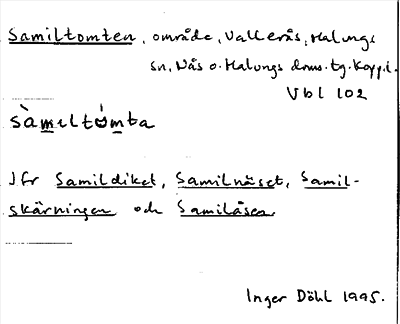 Samiltomten, område, Vallerås, Malungs
sn, Nås o. Malungs doms. tg. Kopp. l.
Vbl 102
sàmıltómta
Jfr Samildiket, Samilnäset, Samil-
skärningen och Samilåsen.
Inger Döhl 1995.